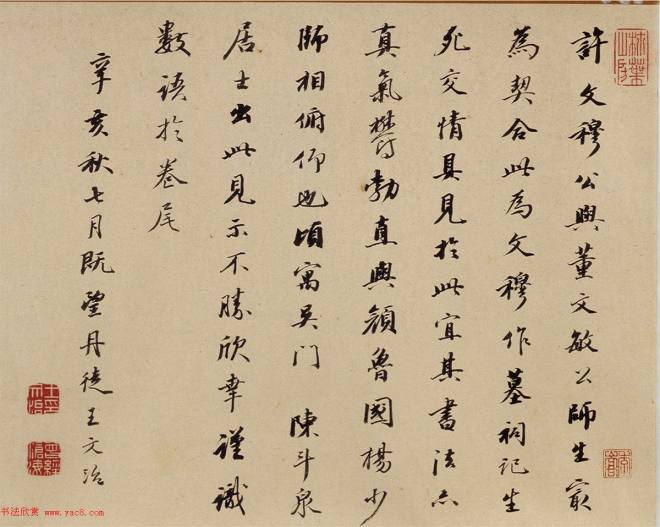 許文穆公與董文敏公師生最
為契合此為文穆作墓祠記生
死交情具見於此宜其書法亦
真氣鬱勃直與顏魯國楊少
師相俯仰也頃寓吳門 陳斗泉
居士出此見示不勝欣幸謹識
數語於卷尾
辛亥秋七月既望丹徒王文治
书法欣赏 www.yac8.com